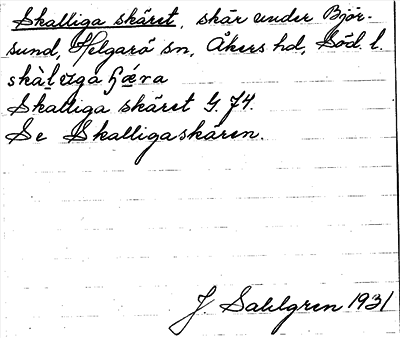 Skalliga skäret, skär under Björ-
sund, Helgarö sn, Åkers hd, Söd. l.
Skalliga skäret G. 74.
Se Skalligaskären.
J. Sahlgren 1931